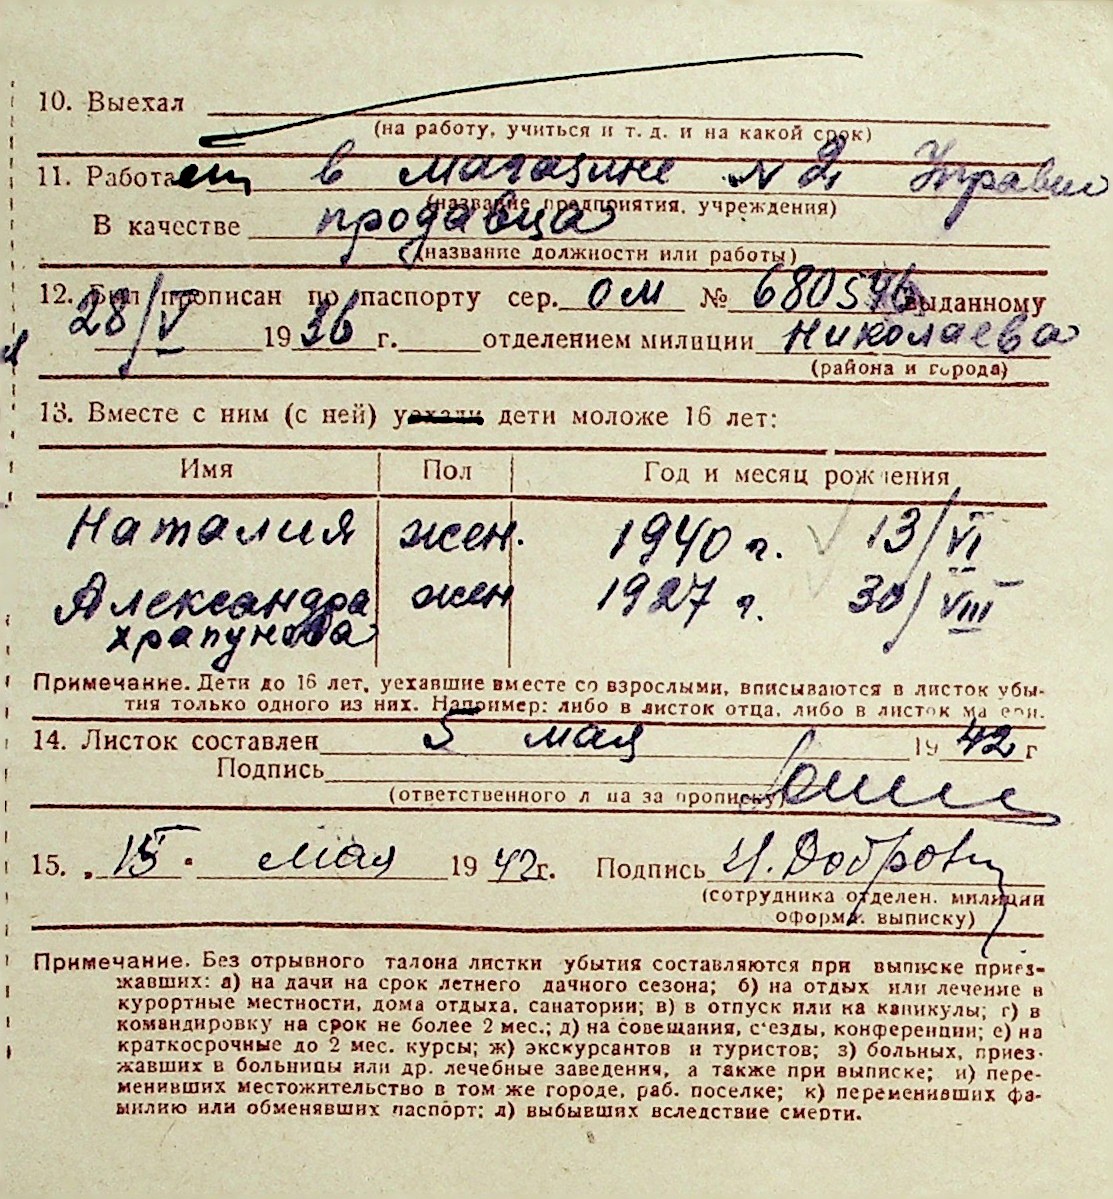 10. Выехал
(на работу, учиться и т. д. и на какой срок)
11. Работает в магазине N 2
(название предприятия, учреждения)
В качестве продавца
(название должности или работы)
12. Был прописан по паспорту сер. ОМ № 680546 выданному
28/V 1936 г. отделением милиции Николаева
(района и города)
13. Вместе с ним (с ней) уехали дети моложе 16 лет:
Имя Пол Год и месяц рождения
Наталия жен. 1940 г. 13/VI
Александра жен 1927 г. 30/VIII
Храпунова
Примечание. Дети до 16 лет, уехавшие вместе со взрослыми, вписываются в листок убы-
тия только одного из них. Например: либо в листок отца, либо в листок матери.
14. Листок составлен 5 мая 1942 г
Подпись
(ответственного лица за прописку)
15. „15" мая 1942 г. Подпись И. Добров
(сотрудника отделен. милиции
оформ. выписку)
Примечание. Без отрывного талона листки убытия составляются при выписке приез-
жавших: а) на дачи на срок летнего дачного сезона; б) на отдых или лечение в
курортные местности, дома отдыха, санатории; в) в отпуск или на каникулы; г) в
командировку на срок не более 2 мес.; д) на совещания, с'езды, конференции; е) на
краткосрочные до 2 мес. курсы; ж) экскурсантов и туристов; з) больных, приез-
жавших в больницы или др. лечебные заведения, а также при выписке; и) пере-
менивших местожительство в том же городе, раб. поселке; к) переменивших фа-
милию или обменявших паспорт; л) выбывших вследствие смерти.